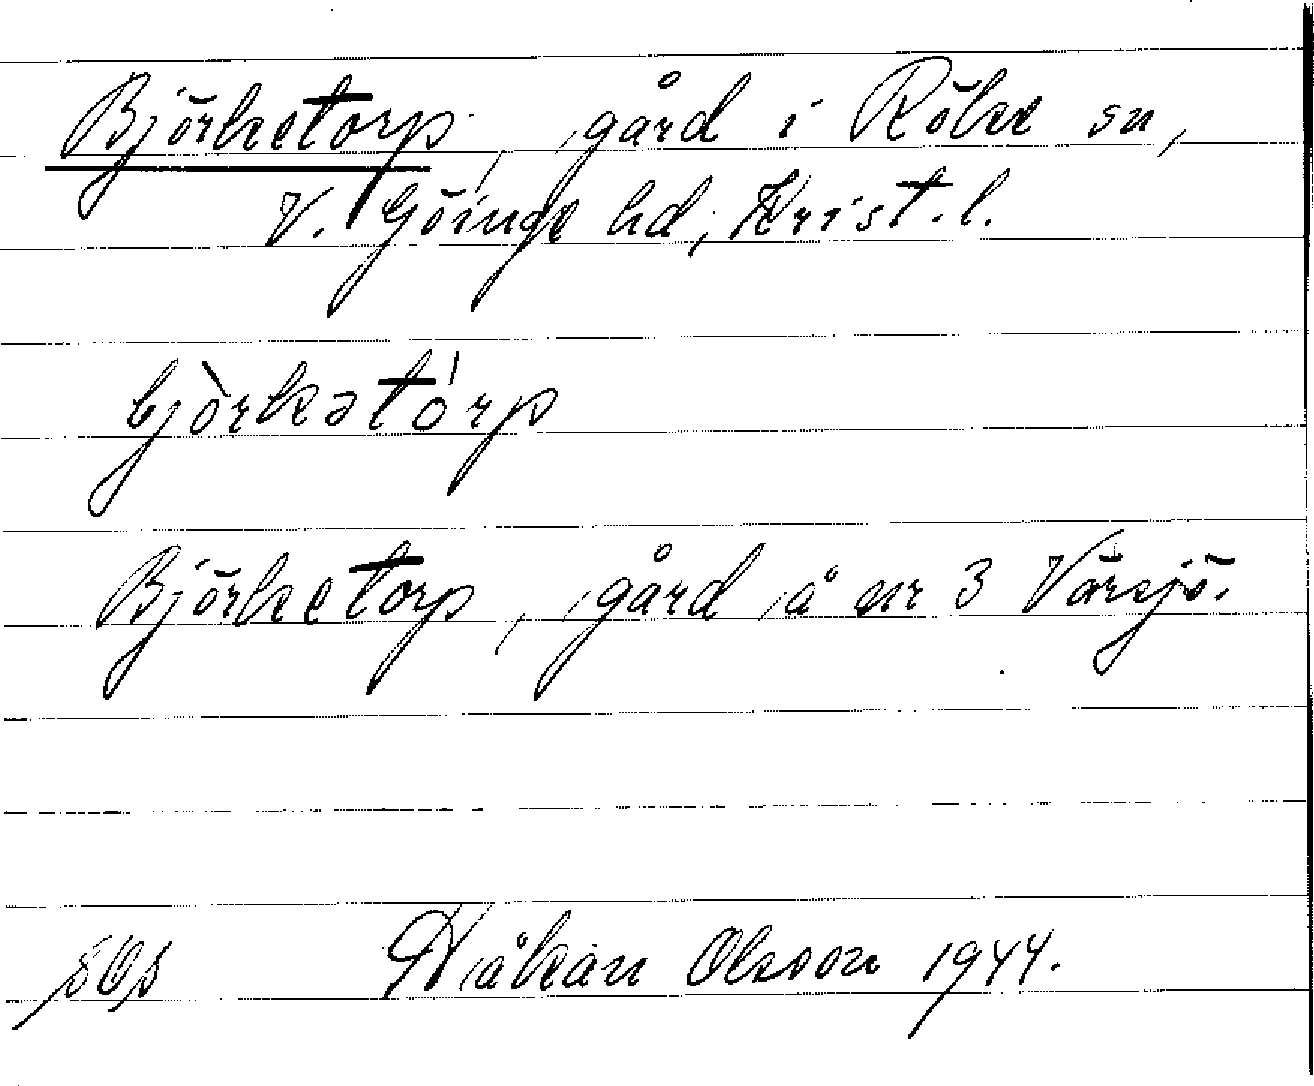 Björketorp, gård i Röke sn,
V. Göinge hd, Krist. l.
bjòrkətórp
Björketorp, gård å nr 3 Vårsjö.
Håkan Olsson 1944.